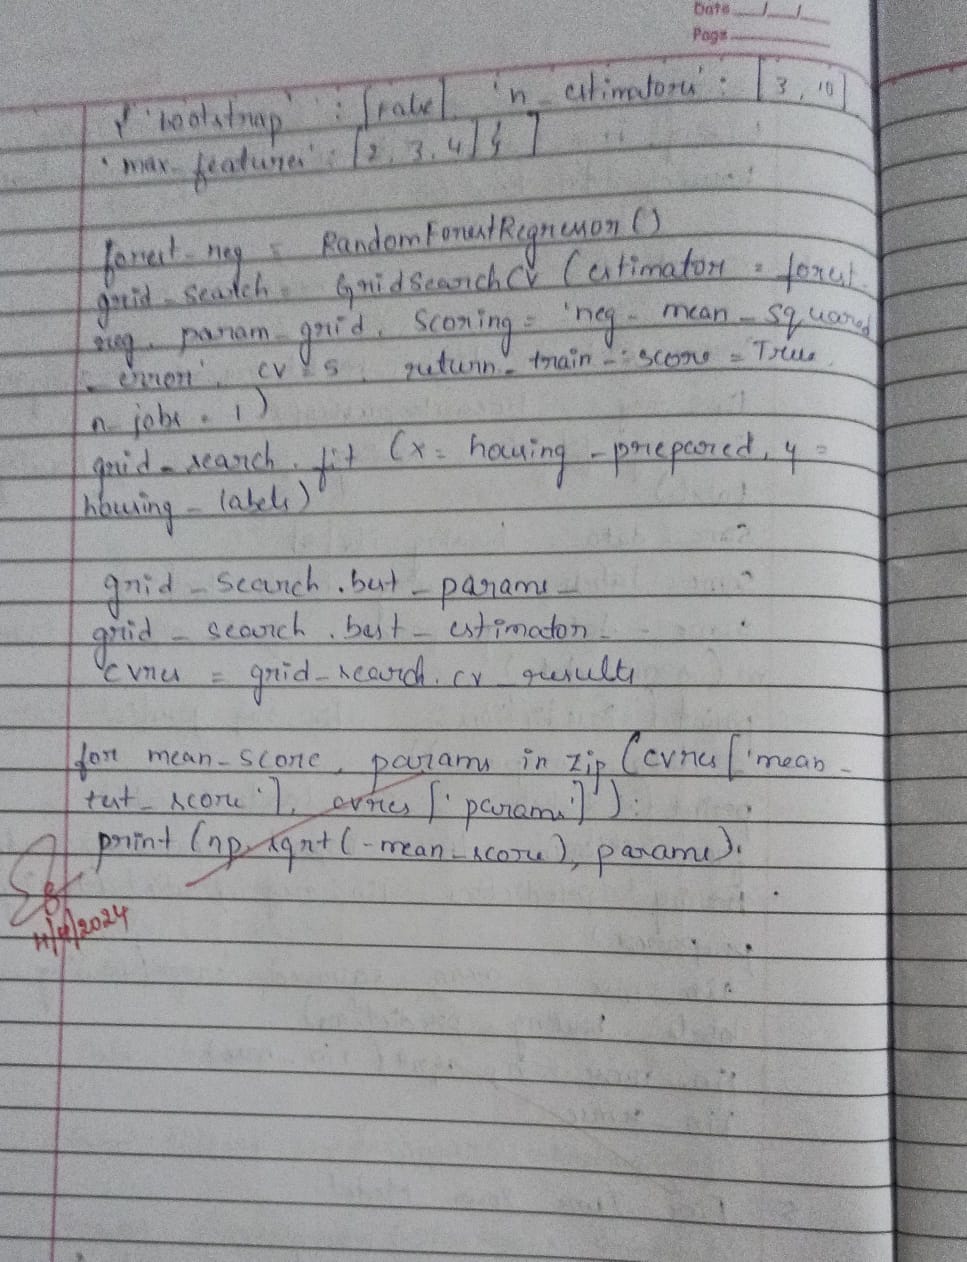 Date __/__/__
Page
{ 'bootstrap' : [False], 'n_estimators' : [3, 10]
'max_features' : [2, 3, 4]} ]
forest_reg = RandomForestRegressor ()
grid_search = GridSearchCV (estimator = forest_
reg, param_grid, scoring = 'neg_mean_squared
_error', cv = 5, return_train_score = True,
n_jobs = 1)
grid_search.fit (x = housing_prepared, y =
housing_labels)
grid_search.best_params_
grid_search.best_estimator_
cvres = grid_search.cv_results
for mean_score, params in zip (cvres['mean_
test_score'], cvres['params']):
print (np.sqrt(-mean_score), params).
11/4/2024